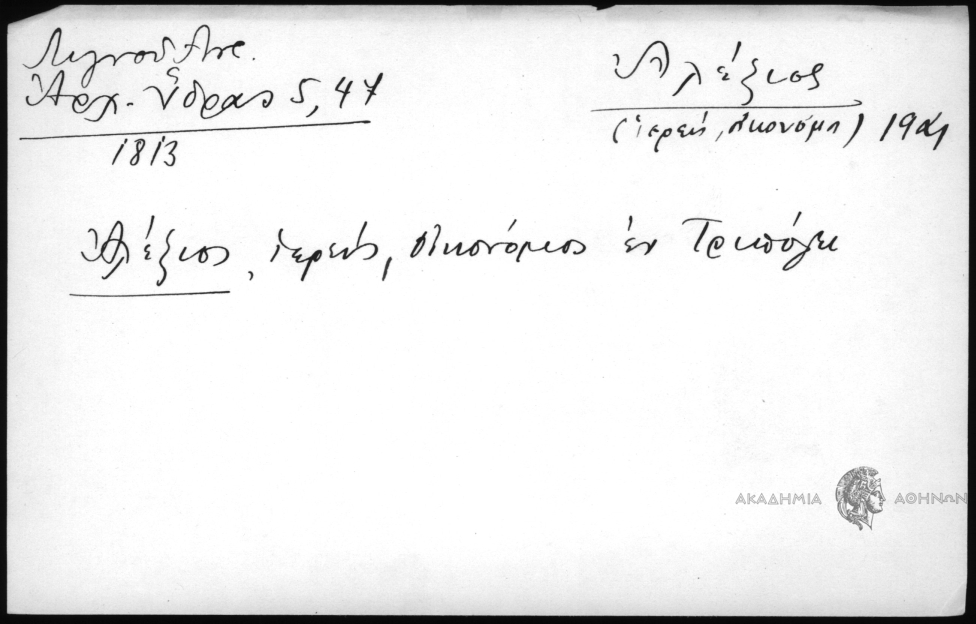 Λιγνοῦ Ἀντ.
Ἀρχ. Ὕδρας 5, 47
1813
Ἀλέξιος
(ἱερεύς, οἰκονόμος)
Ἀλέξιος, ἱερεύς, οἰκονόμος ἐν Τριπόλει
ΑΚΑΔΗΜΙΑ ΑΘΗΝΩΝ